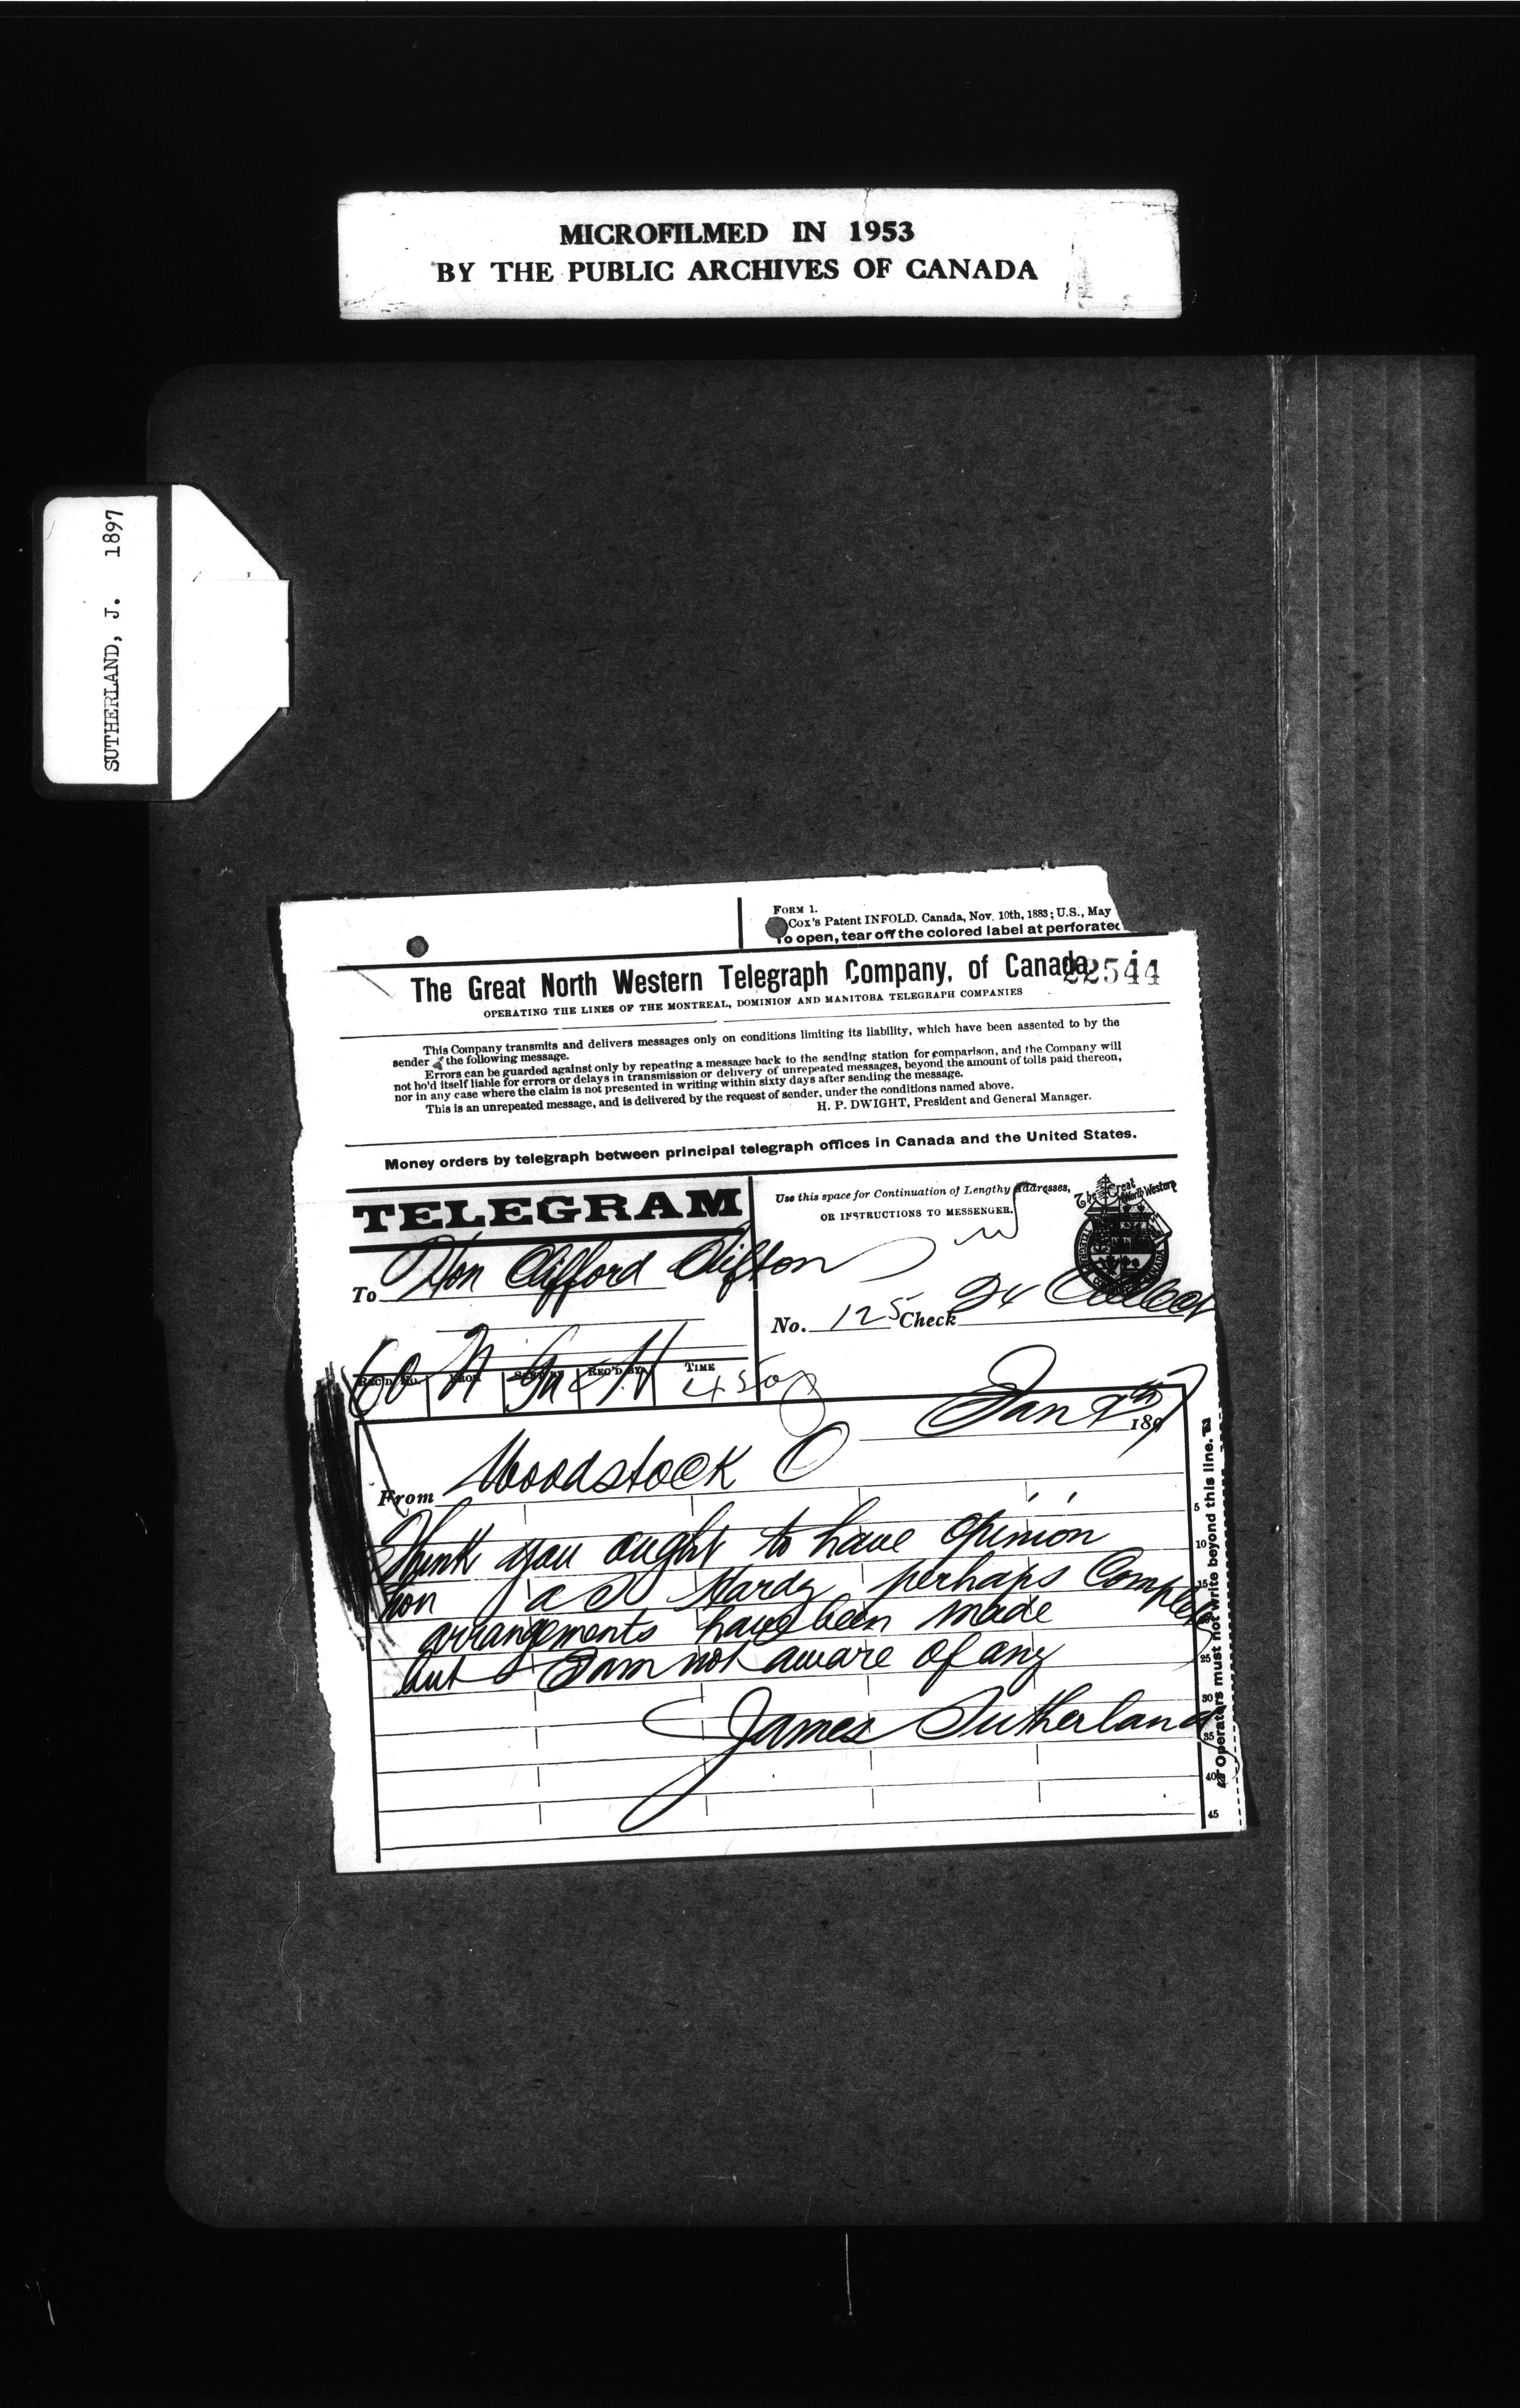 MICROFILMED IN 1953
BY THE PUBLIC ARCHIVES OF CANADA
SUTHERLAND, J. 1897
FORM 1.
Cox's Patent INFOLD. Canada, Nov. 10th, 1883; U.S., May
To open, tear off the colored label at perforate
The Great North Western Telegraph Company, of Canada.
22544
OPERATING THE LINES OF THE MONTREAL, DOMINION AND MANITOBA TELEGRAPH COMPANIES
This Company transmits and delivers messages only on conditions limiting its liability, which have been assented to by the
sender of the following message.
Errors can be guarded against only by repeating a message back to the sending station for comparison, and the Company will
not ho'd itself liable for errors or delays in transmission or delivery of unrepeated messages, beyond the amount of tolls paid thereon,
nor in any case where the claim is not presented in writing within sixty days after sending the message.
This is an unrepeated message, and is delivered by the request of sender, under the conditions named above.
H. P. DWIGHT, President and General Manager.
Money orders by telegraph between principal telegraph offices in Canada and the United States.
TELEGRAM
Use this space for Continuation of Lengthy Addresses,
OR INSTRUCTIONS TO MESSENGER.
The Great North Western
To Hon Clifford Clifton
No. 125 Check 24 Collect
REC'D No. FROM SENT BY REC'D BY TIME
60 N H 450
Jan 1897
From Woodstock O
Think you ought to have opinion
hon a S Hardy perhaps Complete
arrangements have been made
but I am not aware of any
James Sutherland
Operators must not write beyond this line.
5
10
15
25
30
35
40
45